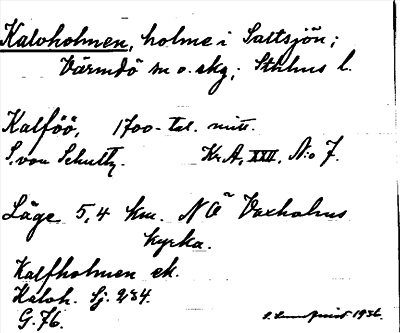 Kaloholmen, holme i Saltsjön;
Värmdö sn o. skg; Sthlms l.
Kalföö, 1700-tal. mitt.
S. von Schultz. Kr.A. XXII, N:o 7.
Läge 5,4 km. NÖ Vaxholms
kyrka.
Kalfholmen ek.
Kaloh. Sj. 234.
G. 76.
1936.